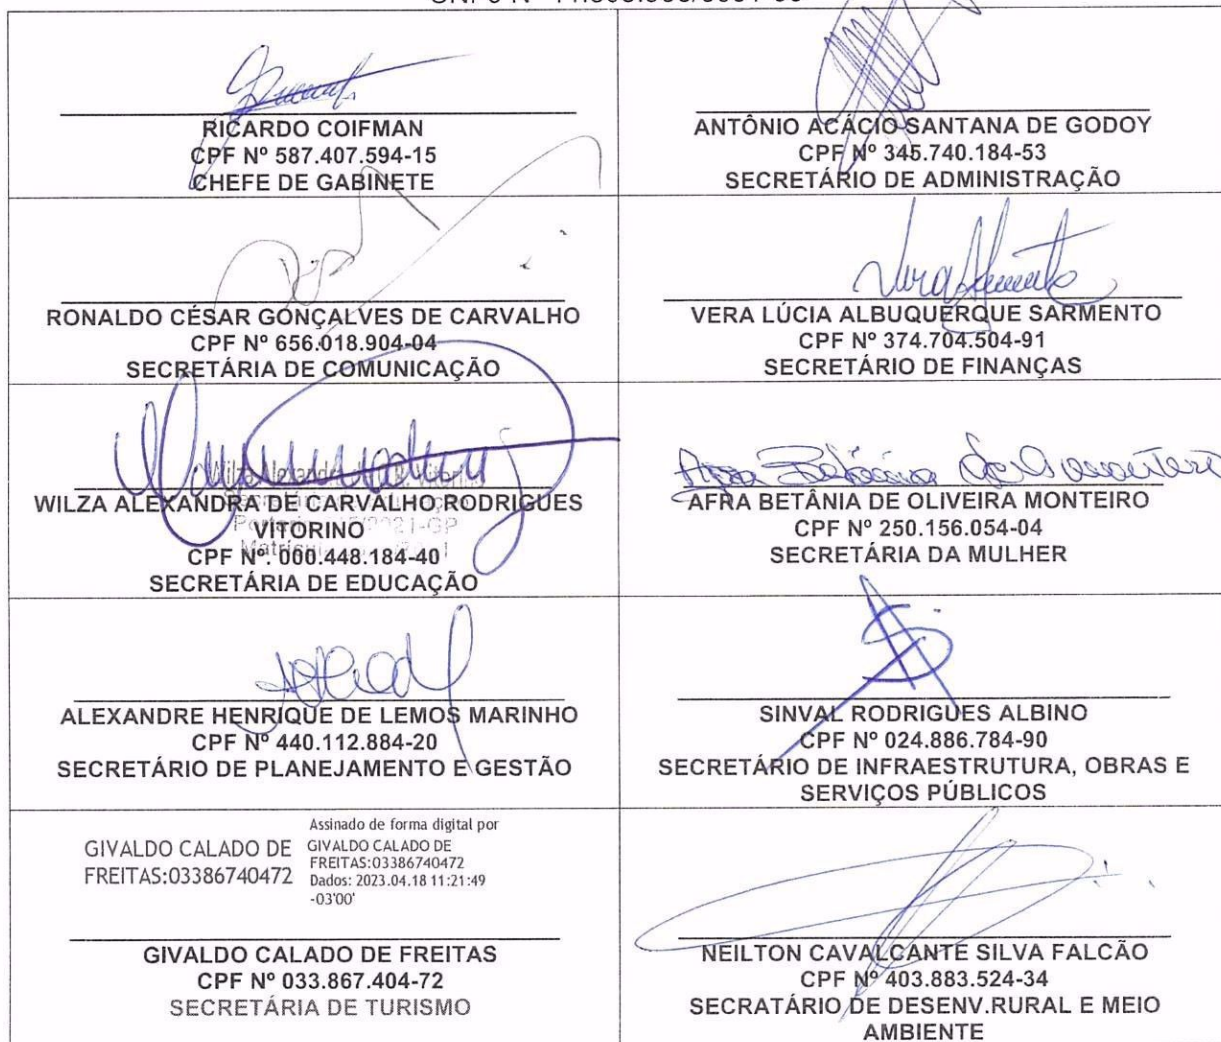 RICARDO COIFMAN
CPF Nº 587.407.594-15
CHEFE DE GABINETE
ANTÔNIO ACÁCIO SANTANA DE GODOY
CPF Nº 345.740.184-53
SECRETÁRIO DE ADMINISTRAÇÃO
RONALDO CÉSAR GONÇALVES DE CARVALHO
CPF Nº 656.018.904-04
SECRETÁRIA DE COMUNICAÇÃO
VERA LÚCIA ALBUQUERQUE SARMENTO
CPF Nº 374.704.504-91
SECRETÁRIO DE FINANÇAS
WILZA ALEXANDRA DE CARVALHO RODRIGUES
VITORINO
CPF Nº. 000.448.184-40
SECRETÁRIA DE EDUCAÇÃO
AFRA BETÂNIA DE OLIVEIRA MONTEIRO
CPF Nº 250.156.054-04
SECRETÁRIA DA MULHER
ALEXANDRE HENRIQUE DE LEMOS MARINHO
CPF Nº 440.112.884-20
SECRETÁRIO DE PLANEJAMENTO E GESTÃO
SINVAL RODRIGUES ALBINO
CPF Nº 024.886.784-90
SECRETÁRIO DE INFRAESTRUTURA, OBRAS E
SERVIÇOS PÚBLICOS
GIVALDO CALADO DE
FREITAS:03386740472
Assinado de forma digital por
GIVALDO CALADO DE
FREITAS:03386740472
Dados: 2023.04.18 11:21:49
-03'00'
GIVALDO CALADO DE FREITAS
CPF Nº 033.867.404-72
SECRETÁRIA DE TURISMO
NEILTON CAVALCANTE SILVA FALCÃO
CPF Nº 403.883.524-34
SECRATÁRIO DE DESENV.RURAL E MEIO
AMBIENTE